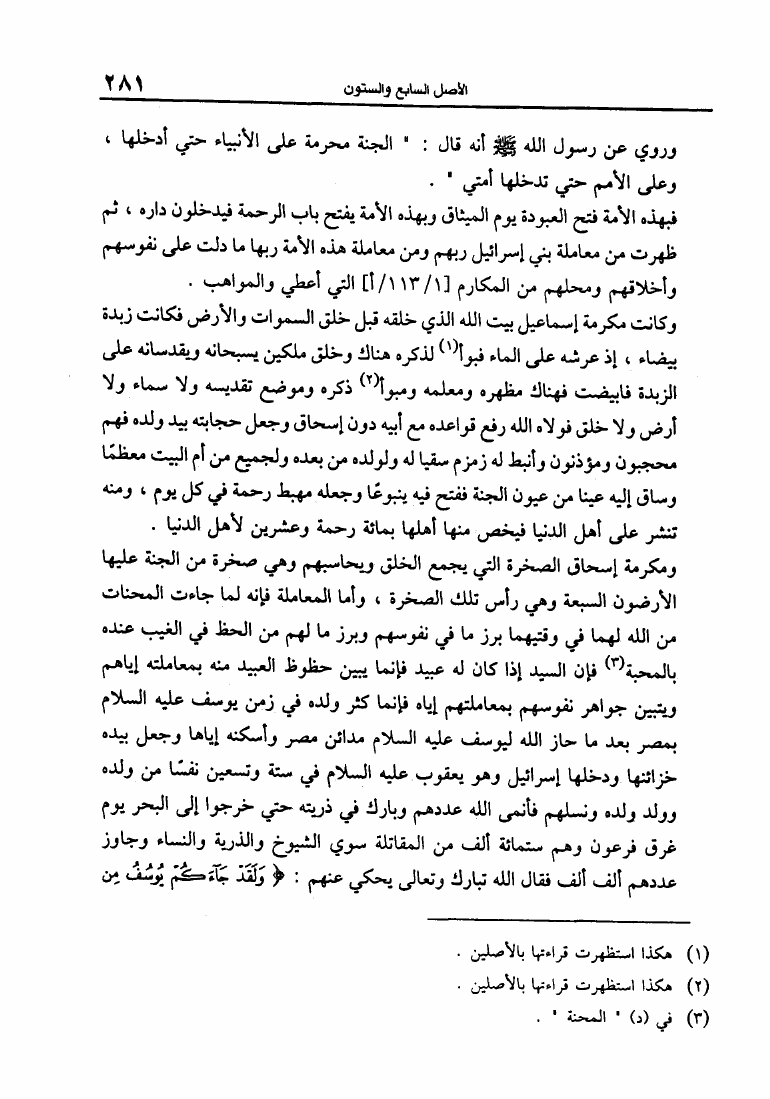 الأصل السابع والستون
٢٨١
وروي عن رسول الله ﷺ أنه قال : " الجنة محرمة على الأنبياء حتي أدخلها ،
وعلى الأمم حتي تدخلها أمتي " .
فبهذه الأمة فتح العبودة يوم الميثاق وبهذه الأمة يفتح باب الرحمة فيدخلون داره ، ثم
ظهرت من معاملة بني إسرائيل ربهم ومن معاملة هذه الأمة ربها ما دلت على نفوسهم
وأخلاقهم ومحلهم من المكارم [١١٣/١/أ] التي أعطي والمواهب .
وكانت مكرمة إسماعيل بيت الله الذي خلقه قبل خلق السموات والأرض فكانت زبدة
بيضاء ، إذ عرشه على الماء فبوأ(١) لذكره هناك وخلق ملكين يسبحانه ويقدسانه على
الزبدة فابيضت فهناك مظهره ومعلمه ومبوأ(٢) ذكره وموضع تقديسه ولا سماء ولا
أرض ولا خلق فولاه الله رفع قواعده مع أبيه دون إسحاق وجعل حجابته بيد ولده فهم
محجبون ومؤذنون وأنبط له زمزم سقيا له ولولده من بعده ولجميع من أم البيت معظمًا
وساق إليه عينا من عيون الجنة ففتح فيه ينبوعًا وجعله مهبط رحمة في كل يوم ، ومنه
تنشر على أهل الدنيا فيخص منها أهلها بمائة رحمة وعشرين لأهل الدنيا .
ومكرمة إسحاق الصخرة التي يجمع الخلق ويحاسبهم وهي صخرة من الجنة عليها
الأرضون السبعة وهي رأس تلك الصخرة ، وأما المعاملة فإنه لما جاءت المحنات
من الله لهما في وقتيهما برز ما في نفوسهم وبرز ما لهم من الحظ في الغيب عنده
بالمحبة(٣) فإن السيد إذا كان له عبيد فإنما يبين حظوظ العبيد منه بمعاملته إياهم
ويتبين جواهر نفوسهم بمعاملتهم إياه فإنما كثر ولده في زمن يوسف عليه السلام
بمصر بعد ما حاز الله ليوسف عليه السلام مدائن مصر وأسكنه إياها وجعل بيده
خزائنها ودخلها إسرائيل وهو يعقوب عليه السلام في ستة وتسعين نفسًا من ولده
وولد ولده ونسلهم فأنمى الله عددهم وبارك في ذريته حتي خرجوا إلى البحر يوم
غرق فرعون وهم ستمائة ألف من المقاتلة سوي الشيوخ والذرية والنساء وجاوز
عددهم ألف ألف فقال الله تبارك وتعالى يحكي عنهم : ﴿ وَلَقَدْ جَآءَكُمْ يُوسُفُ مِن
(١) هكذا استظهرت قراءتها بالأصلين .
(٢) هكذا استظهرت قراءتها بالأصلين .
(٣) في (د) " المحنة " .